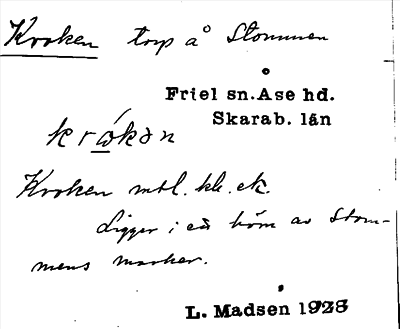 Kroken torp å Stommen
Friel sn. Åse hd.
Skarab. län
krȯ́kən
Kroken mtl. kk. ek.
Ligger i ett hörn av Stom-
mens marker.
L. Madsen 1928